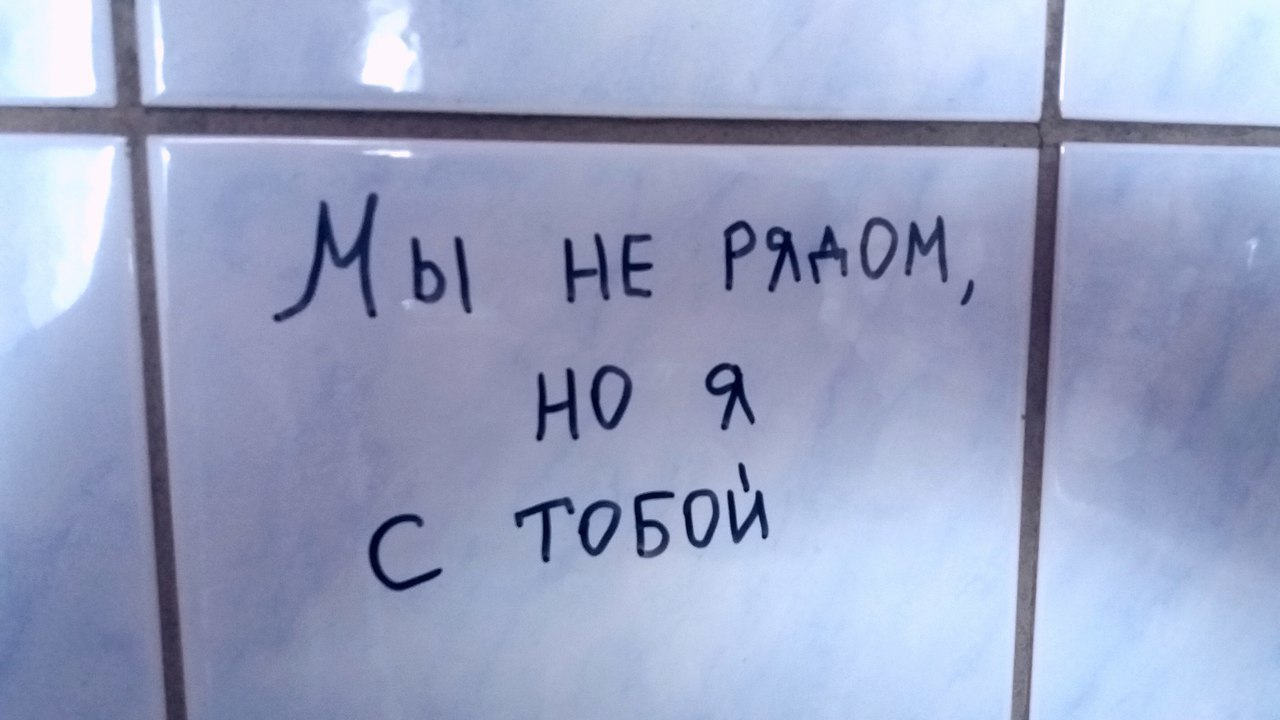 Мы не рядом,
но я
с тобой